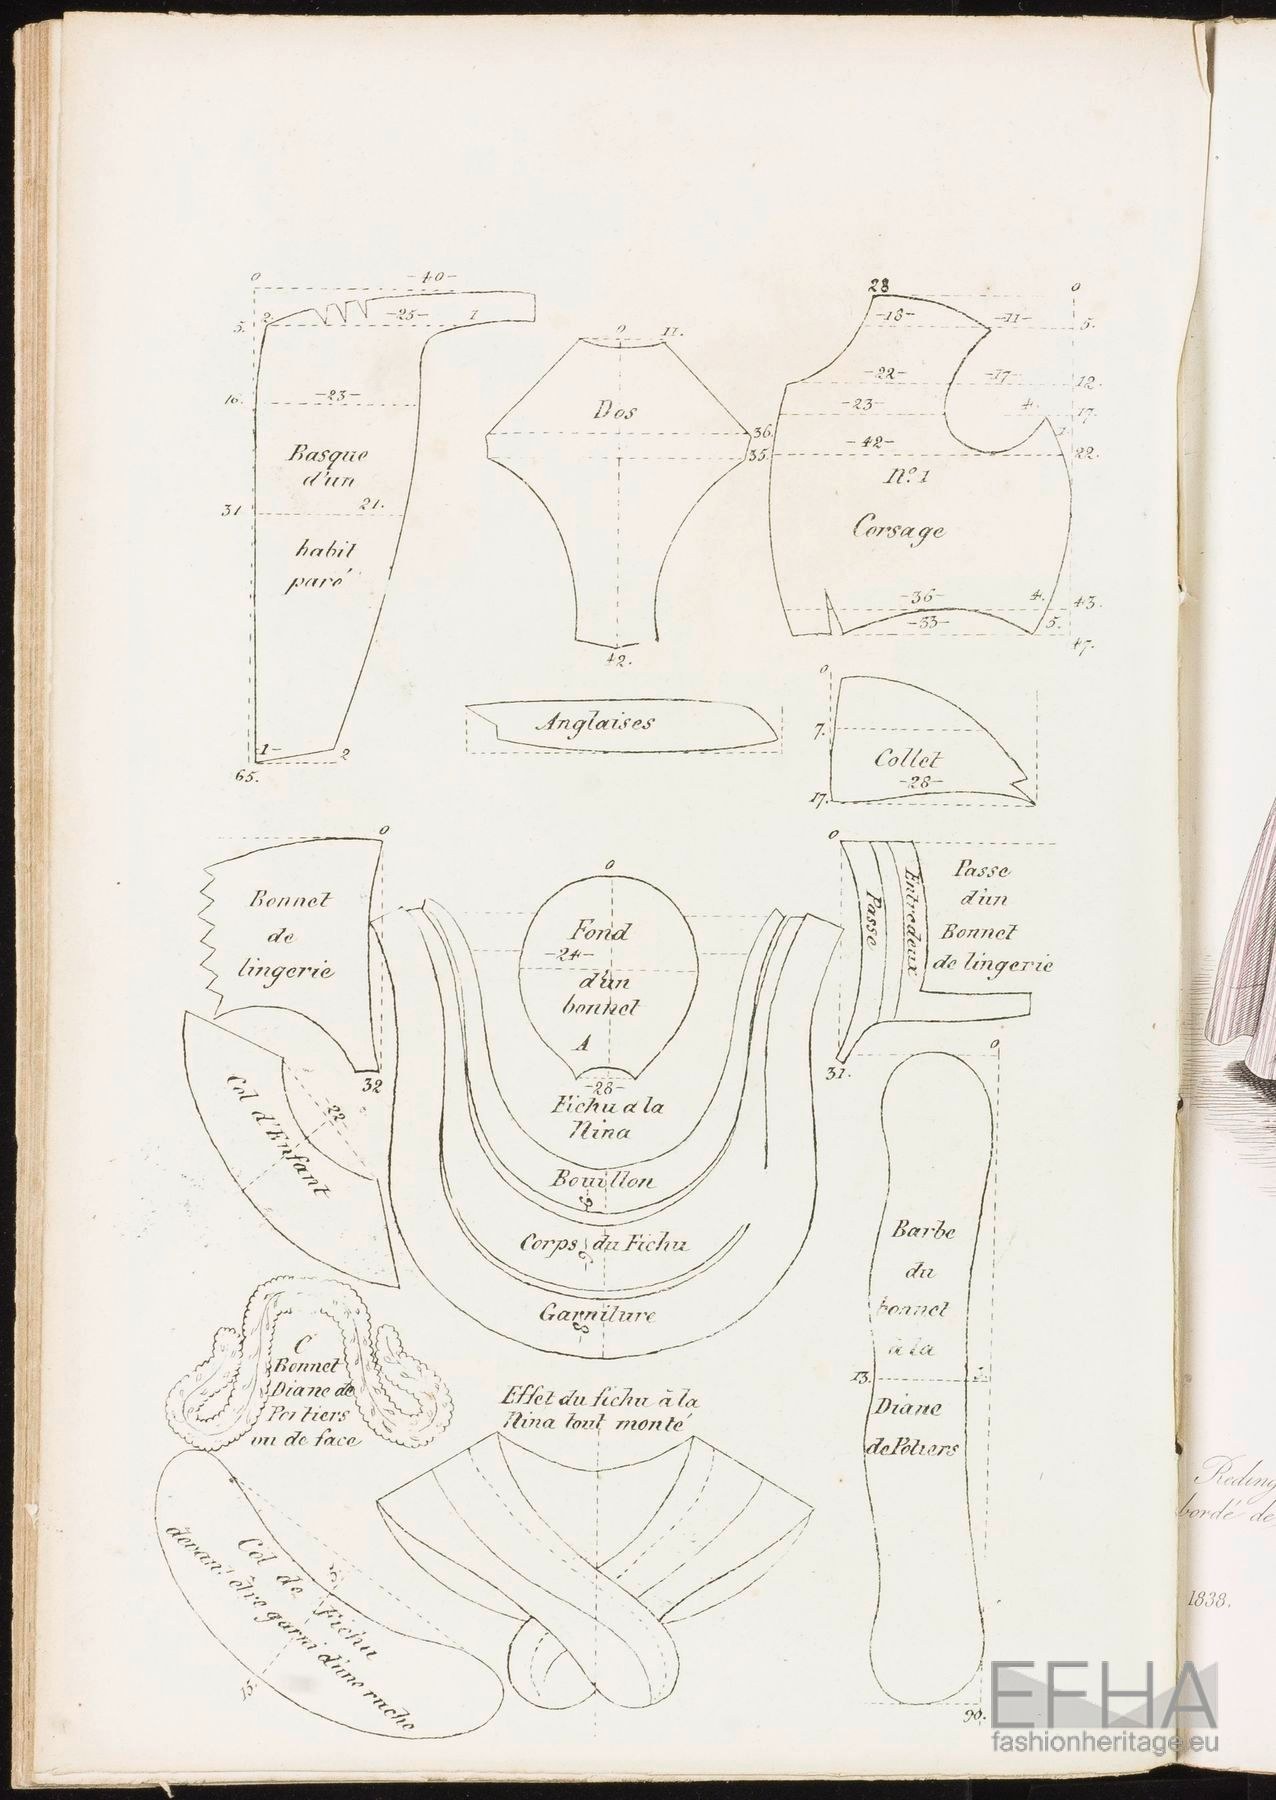 0
-40-
5.
2
-25-
1
16.
-23-
Basque
d'un
31
21.
habit
paré
1-
2
65.
0
11.
Dos
36.
35.
42.
28
0
-18-
-11-
5.
-22-
-17-
12.
-23-
4.
17.
1
-42-
22.
N.º 1
Corsage
-36-
4.
43.
-33-
5.
47.
Anglaises
0
7.
Collet
-28-
17.
0
Bonnet
de
lingerie
32
0
Fond
-24-
d'un
bonnet
A
-28-
Fichu a la
Nina
Bouillon
Corps du Fichu
Garniture
-8-
0
Passe
Entredeux
Passe
d'un
Bonnet
de lingerie
31.
Col d'Enfant
-22-
C
Bonnet
Diane de
Poitiers
vu de face
Effet du fichu à la
Nina tout monté
0
Barbe
du
bonnet
à la
13.
Diane
de Potiers
90.
Col de Fichu
devant être garni d'une ruche
Reding
bordé de
1838.
EFHA
fashionheritage.eu